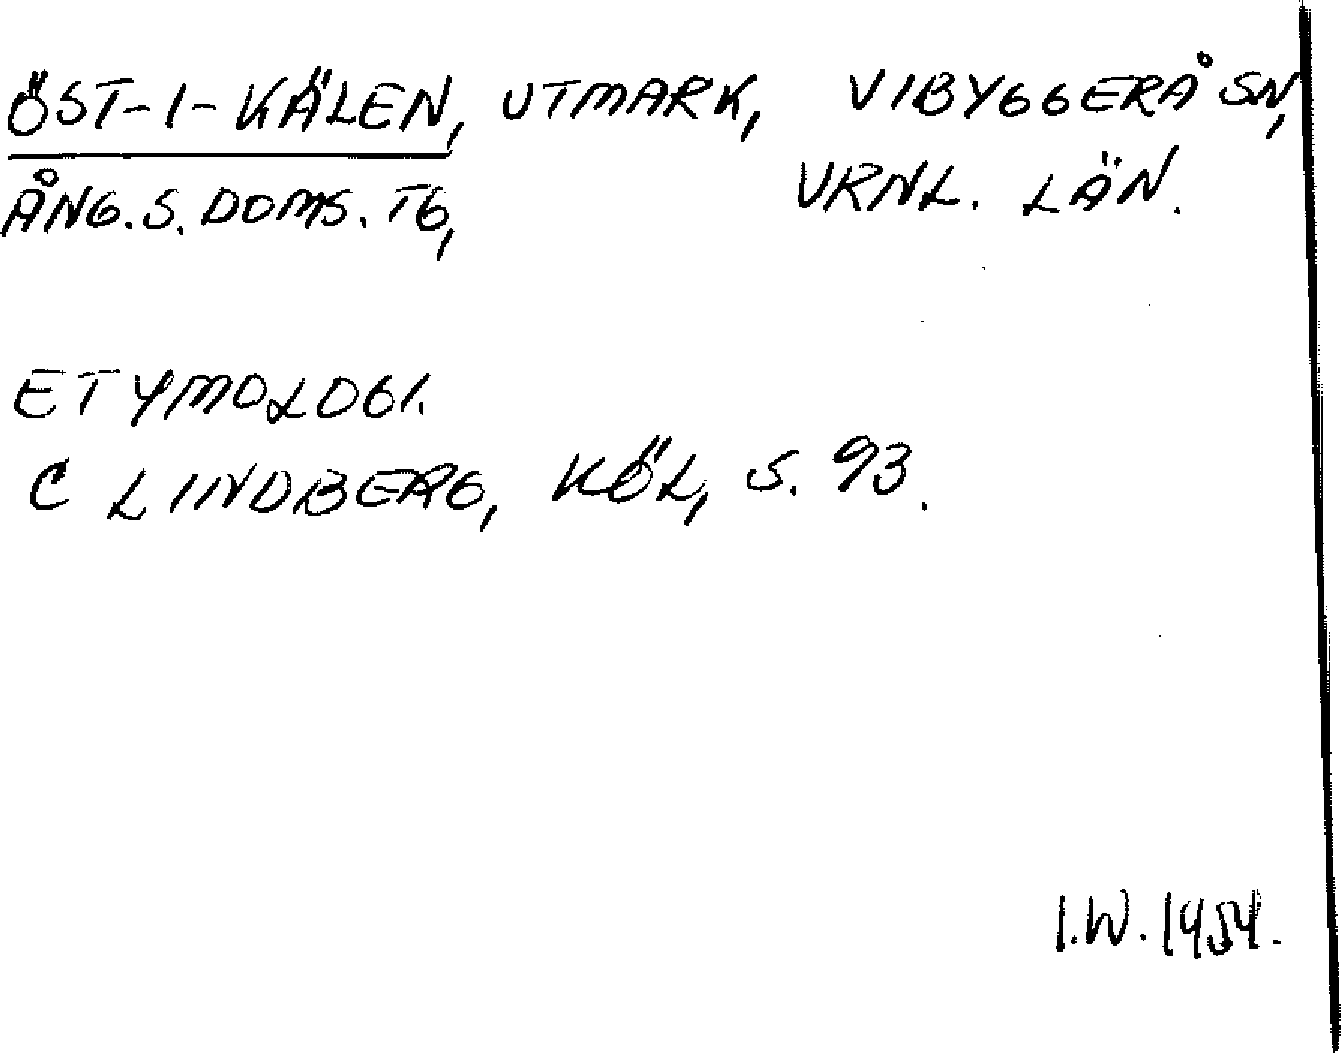 ÖST-I-KÄLEN, UTMARK, VIBYGGERÅ SN,
ÅNG.S.DOMS.TG, VRNL. LÄN.
ETYMOLOGI.
C LINDBERG, KÖL, S. 93.
I.W. 1954.